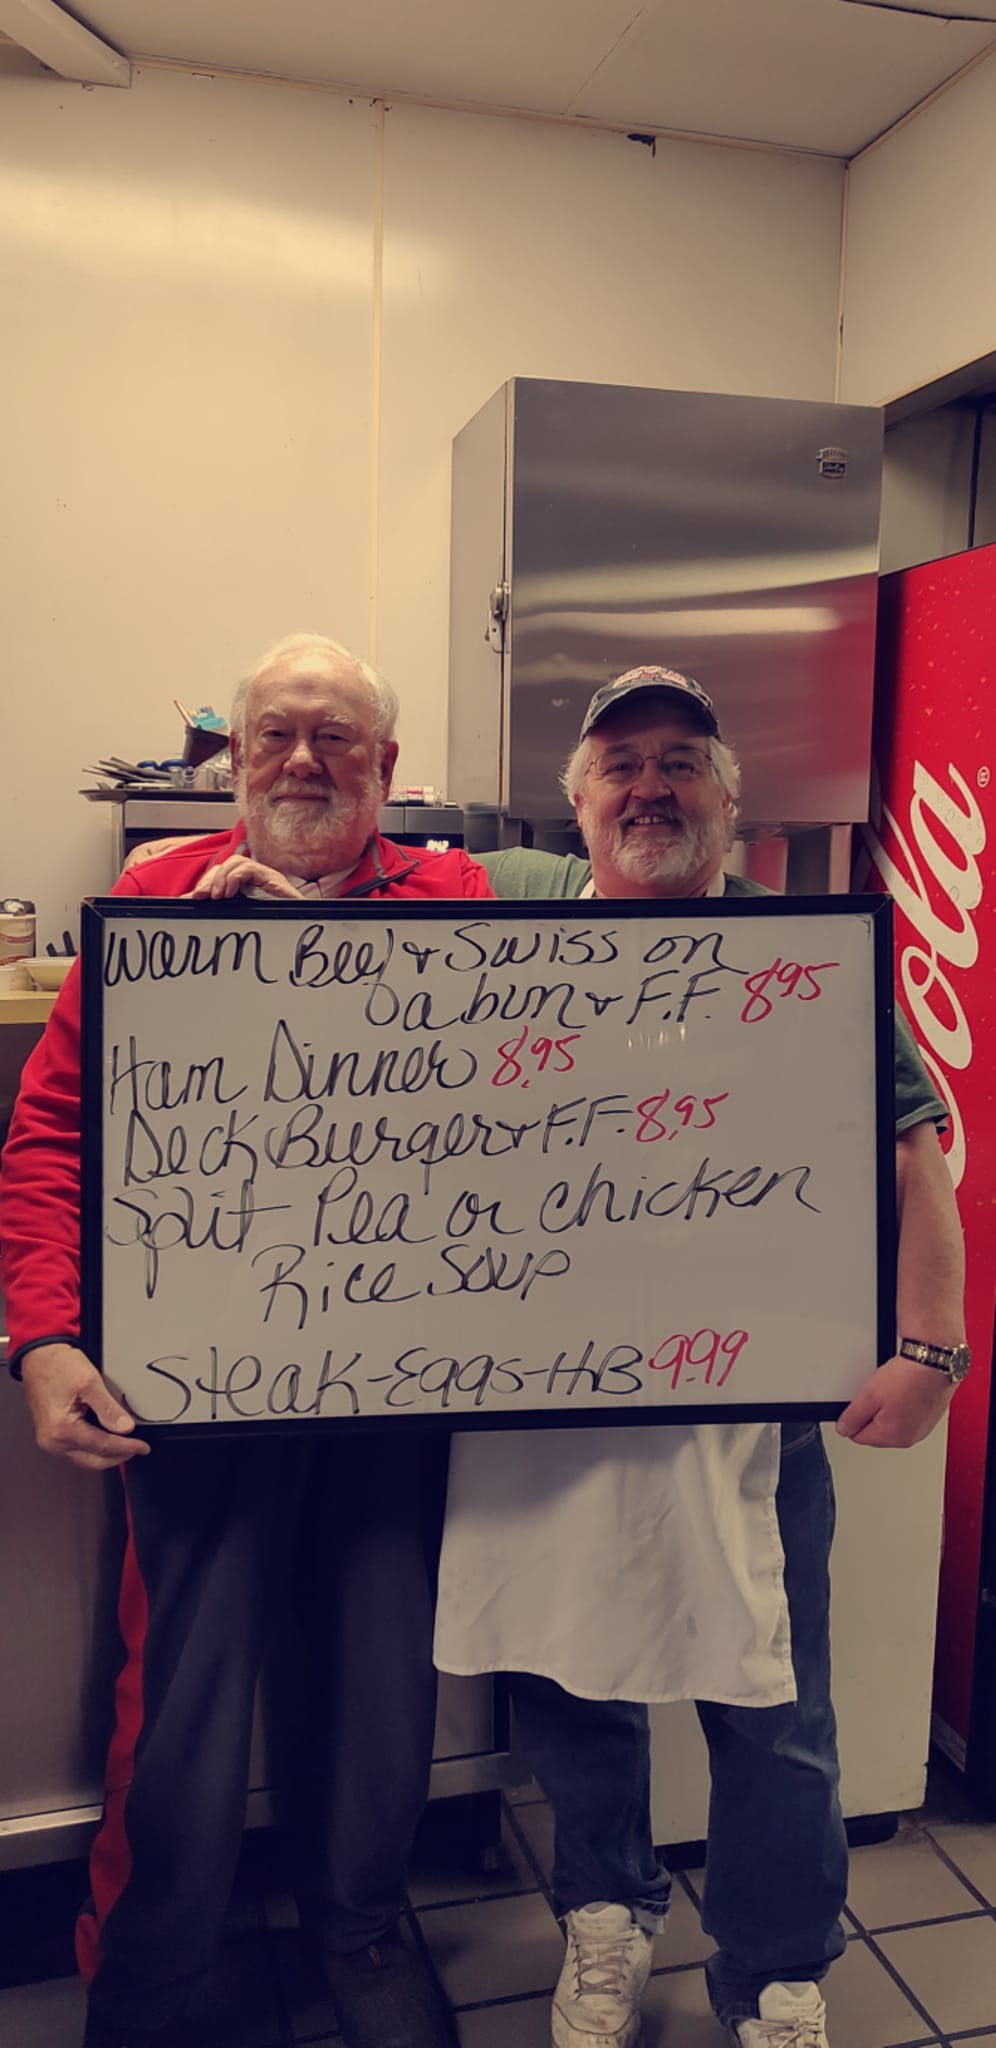 Warm Beef & Swiss on
a bun & F.F. 8.95
Ham Dinner 8.95
Deck Burger & F.F. 8.95
Split Pea or Chicken
Rice Soup
Steak-Eggs-HB 9.99
Cola®